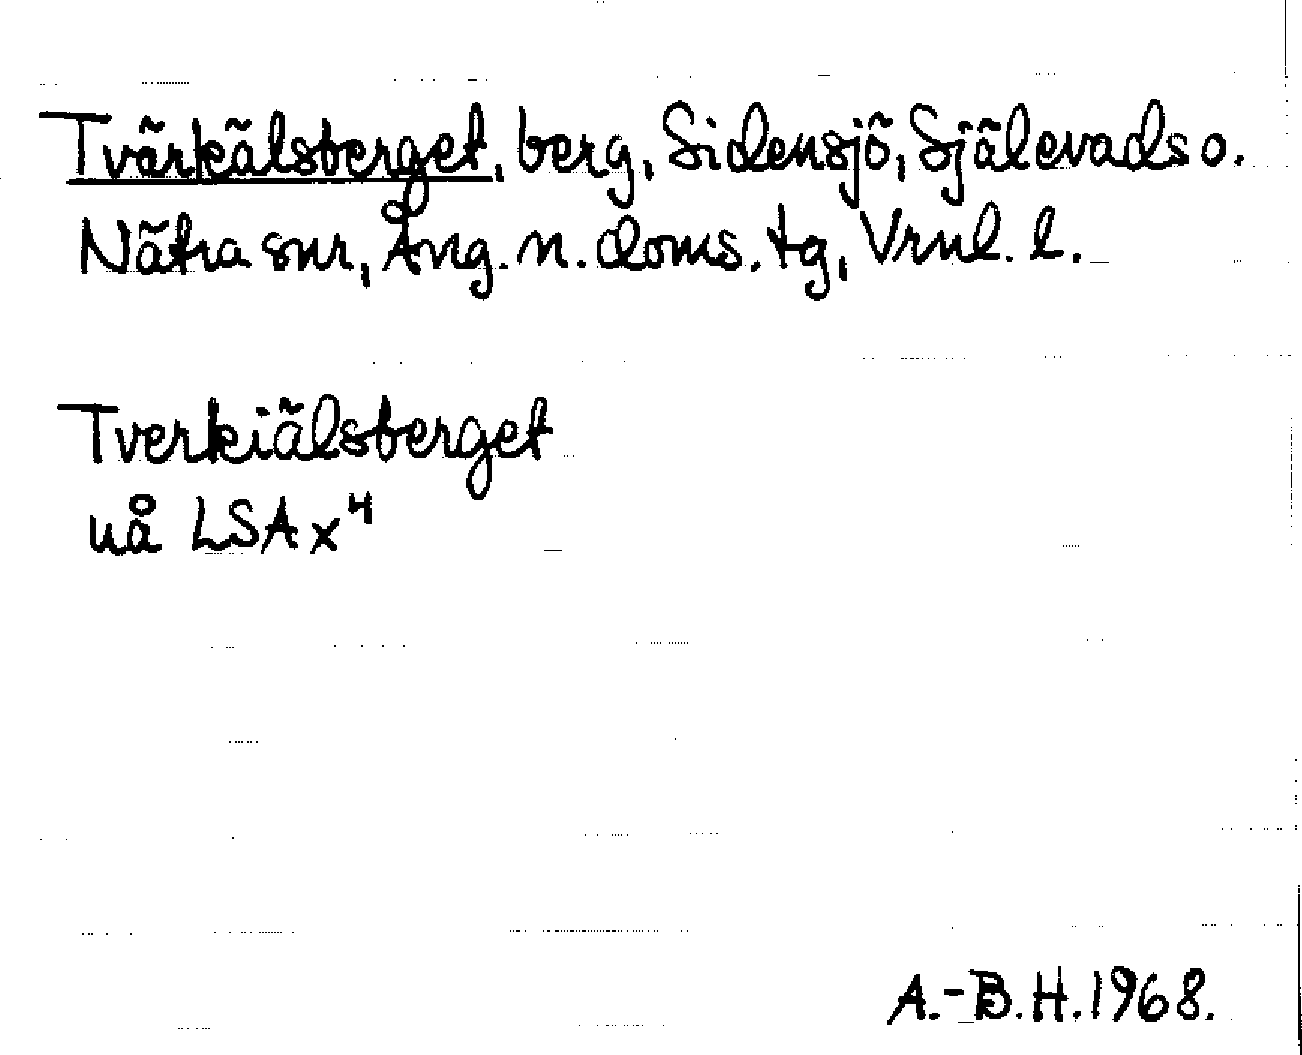 Tvärkälsberget, berg, Sidensjö, Själevads o.
Nätra snr, Ång. n. doms. tg, Vrnl. l.
Tverkiälsberget
uå LSA x⁴
A.-B.H. 1968.